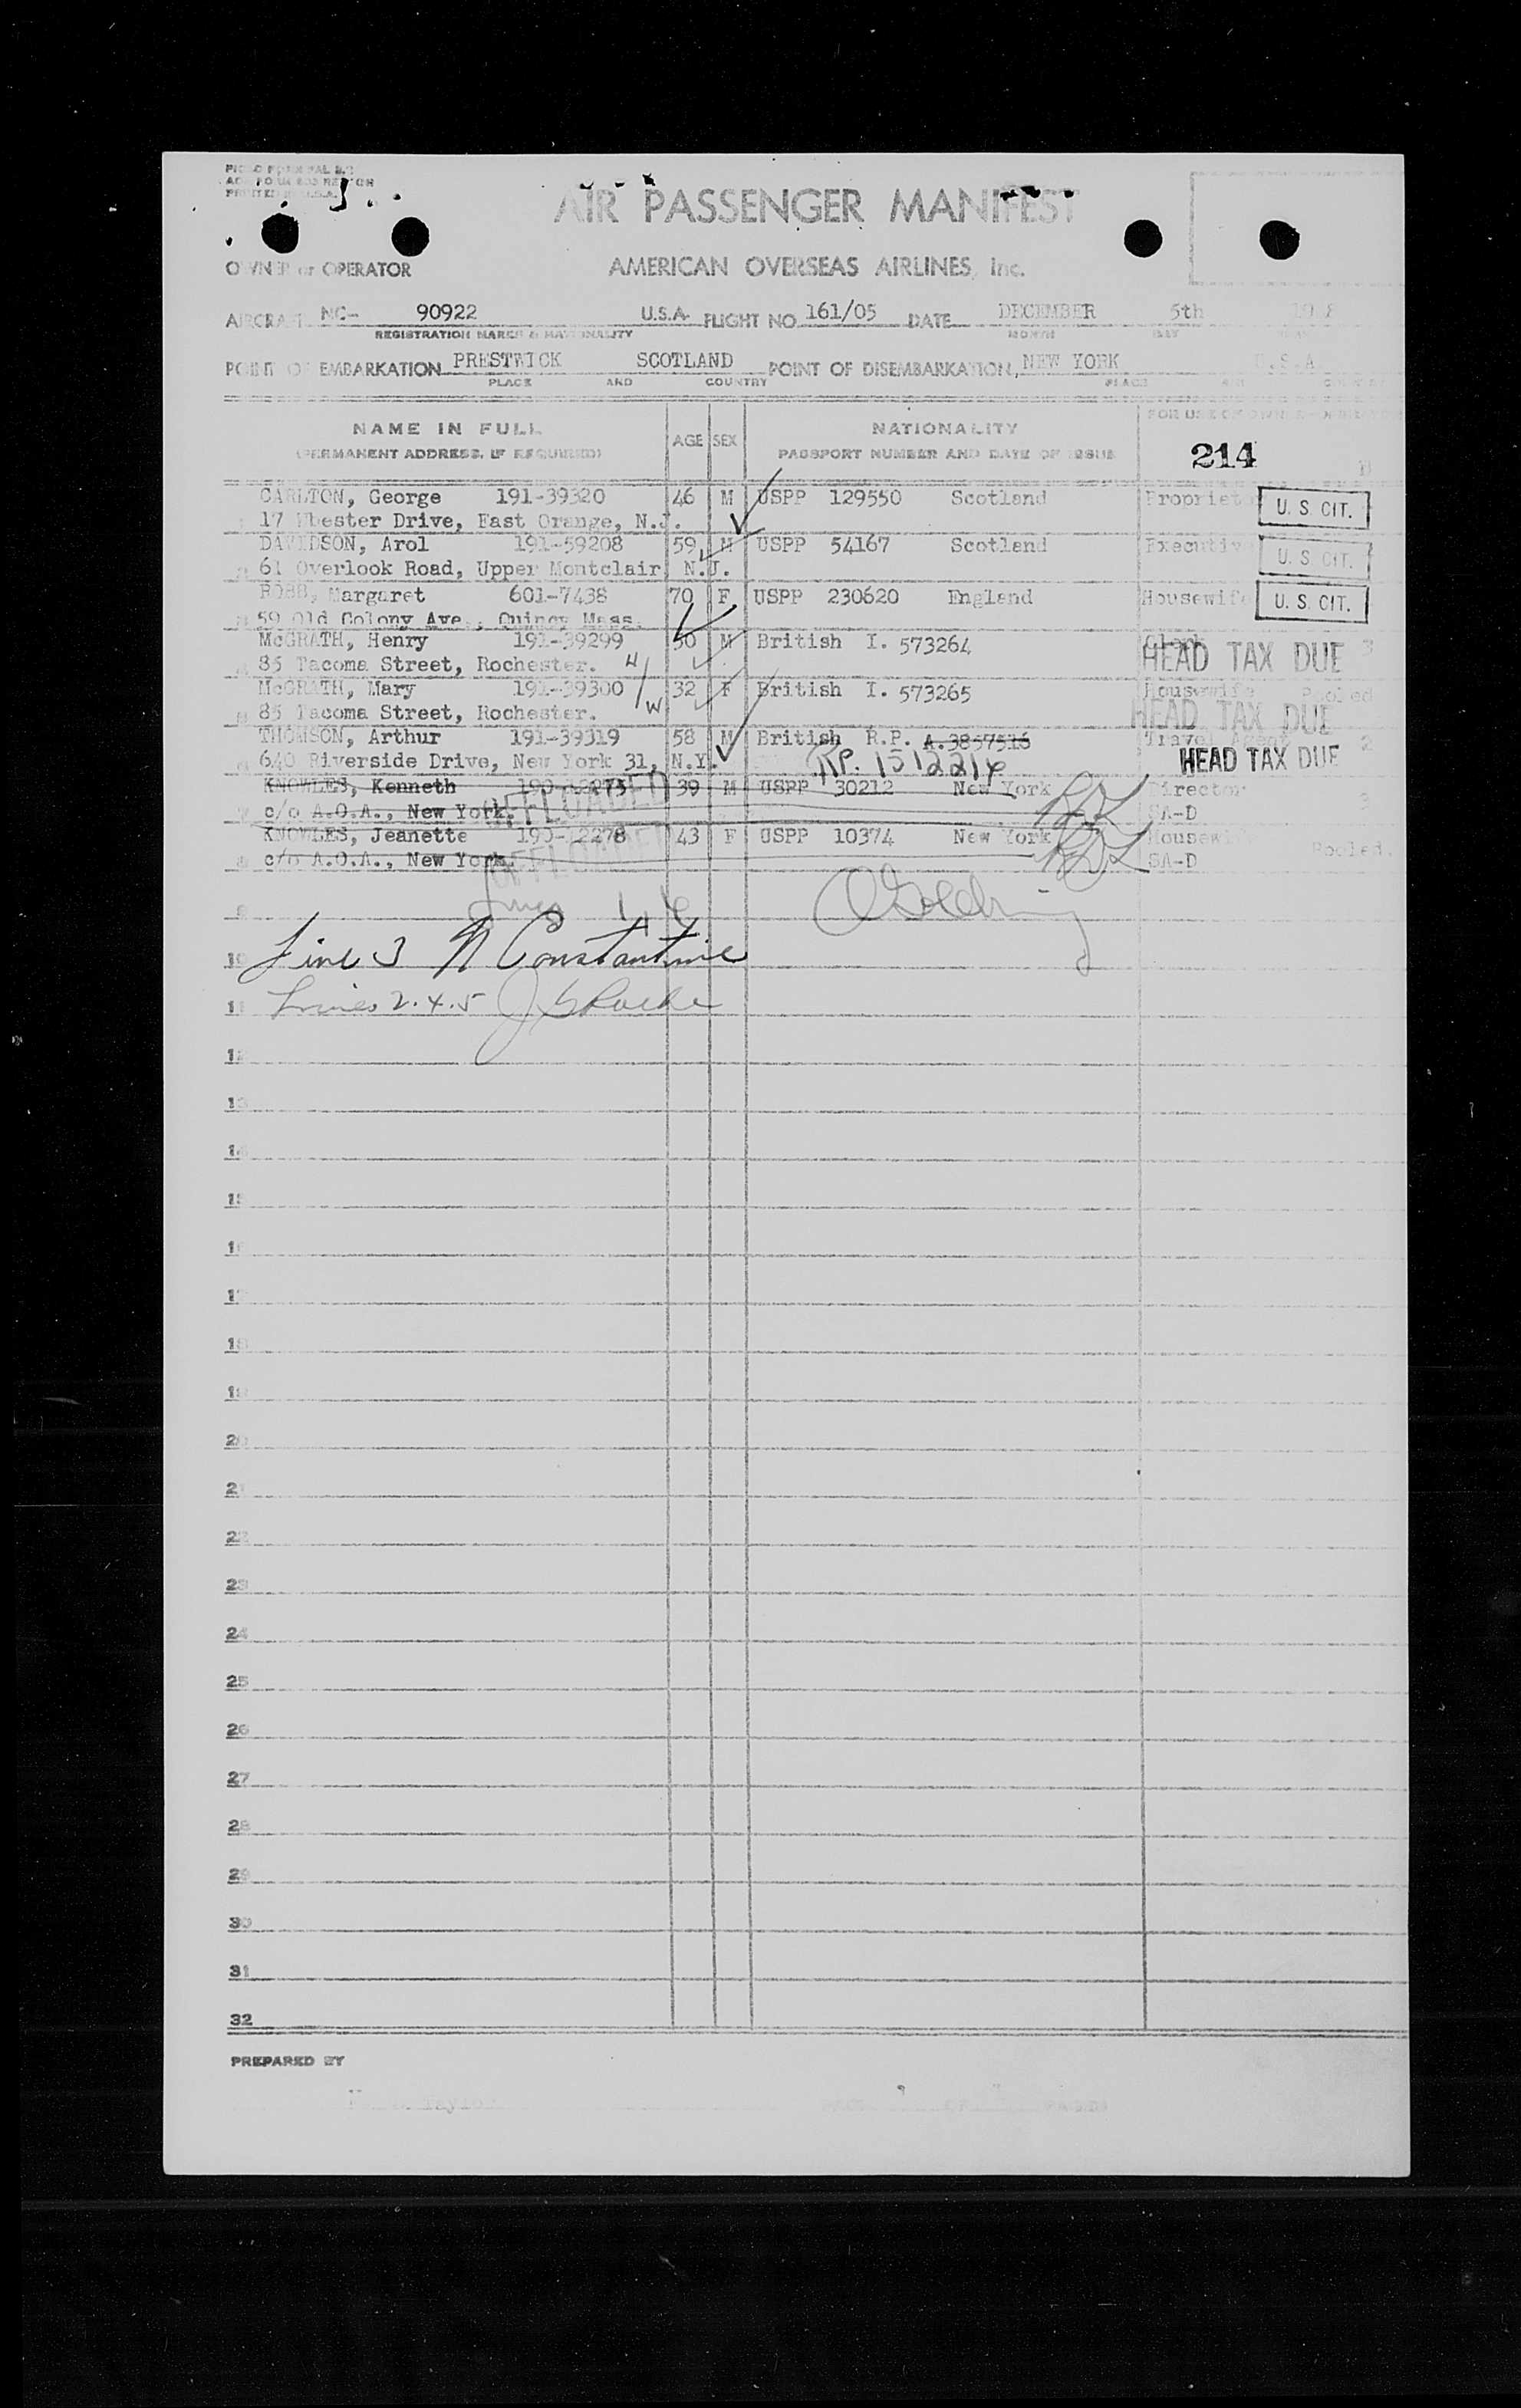 AIR PASSENGER MANIFEST
OWNER or OPERATOR AMERICAN OVERSEAS AIRLINES, Inc.
AIRCRAFT NC- 90922 U.S.A. FLIGHT NO. 161/05 DATE DECEMBER 5th
REGISTRATION MARKS & NATIONALITY MONTH DAY
POINT OF EMBARKATION PRESTWICK SCOTLAND POINT OF DISEMBARKATION, NEW YORK U.S.A.
PLACE AND COUNTRY PLACE AND COUNTRY
NAME IN FULL AGE SEX NATIONALITY FOR USE OF OWNER OR OPERATOR
(PERMANENT ADDRESS, IF REQUIRED) PASSPORT NUMBER AND DATE OF ISSUE 214
CARLTON, George 191-39320 46 M USPP 129550 Scotland Propriet U. S. CIT.
17 Drive, East Orange, N.J.
DAVIDSON, Arol 191-59208 59 M USPP 54167 Scotland Executive U. S. CIT.
61 Overlook Road, Upper Montclair, N.J.
ROBB, Margaret 601-7438 70 F USPP 230620 England Housewife U. S. CIT.
59 Old Colony Ave., Quincy Mass.
McGRATH, Henry 191-39299 30 M British I. 573264 Clerk HEAD TAX DUE 3
85 Tacoma Street, Rochester. H/W
McGRATH, Mary 191-39300 32 F British I. 573265 Housewife Pooled
85 Tacoma Street, Rochester. HEAD TAX DUE
THOMSON, Arthur 191-39319 58 M British R.P. A.3857516 Travel Agent 2
640 Riverside Drive, New York 31, N.Y. RP. 1512214 HEAD TAX DUE
KNOWLES, Kenneth 39 M USPP 30212 New York Director 3
c/o A.O.A., New York. OFFLOADED SA-D
KNOWLES, Jeanette 190-12278 43 F USPP 10374 New York Housew Pooled.
c/o A.O.A., New York. OFFLOADED SA-D
Lines 1, 6
9
10 Line 3 N Constantine
11 Lines 2.4.5
12
13
14
15
16
17
18
19
20
21
22
23
24
25
26
27
28
29
30
31
32
PREPARED BY
Taylor